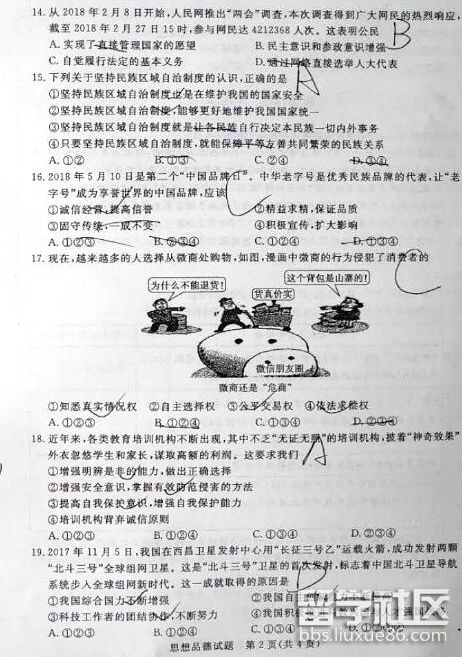 14. 从 2018 年 2 月 8 日开始，人民网推出“两会”调查，本次调查得到广大网民的热烈响应，
截至 2018 年 2 月 27 日 15 时，参与网民达 4212368 人次。这表明公民
B
A. 实现了直接管理国家的愿望 B. 民主意识和参政意识增强
C. 自觉履行法定的基本义务 D. 通过网络直接选举人大代表
15. 下列关于坚持民族区域自治制度的认识，正确的是
A
①坚持民族区域自治制度也是在维护我国的国家安全
②坚持民族区域自治制度，能够更好地维护我国国家统一
③坚持民族区域自治制度就是让各民族自行决定本民族一切内外事务
④只要坚持民族区域自治制度，就能保障平等友善共同繁荣的民族关系
A. ①② B. ①③ C. ②④ D. ③④
16. 2018 年 5 月 10 日是第二个“中国品牌日”。中华老字号是优秀民族品牌的代表，让“老
字号”成为享誉世界的中国品牌，应该
C
①诚信经营，提高信誉 ②精益求精，保证品质
③固守传统，一成不变 ④积极宣传，扩大影响
A. ①②③ B. ②③④ C. ①②④ D. ①③④
17. 现在，越来越多的人选择从微商处购物，如图，漫画中微商的行为侵犯了消费者的
C
为什么不能退货！
货真价实
这个背包是山寨的！
微信朋友圈
微商还是“危商”
①知悉真实情况权 ②自主选择权 ③公平交易权 ④依法求偿权
A. ①②③ B. ①②④ C. ①③④ D. ②③④
18. 近年来，各类教育培训机构不断出现，其中不乏“无证无照”的培训机构，披着“神奇效果”
外衣忽悠学生和家长，谋取高额的利润。这要求我们
A
①增强明辨是非的能力，做出正确选择
②增强安全意识，掌握有效防范侵害的方法
③提高自我保护意识，增强自我保护能力
④培训机构背弃诚信原则
A. ①②③ B. ①②④ C. ①③④ D. ②③④
19. 2017 年 11 月 5 日，我国在西昌卫星发射中心用“长征三号乙”运载火箭，成功发射两颗
“北斗三号”全球组网卫星。这是“北斗三号”卫星的首次发射，标志着中国北斗卫星导航
系统步入全球组网新时代。这一成就取得的原因是
①我国综合国力不断增强 ②我国自
③科技工作者的团结协作，不断努力 ④我国积极
A. ①②③ B. ①②④ C. ①③④ D. ②③④
思想品德试题 第 2 页（共 4 页）
留学社区
bbs.liuxue86.com